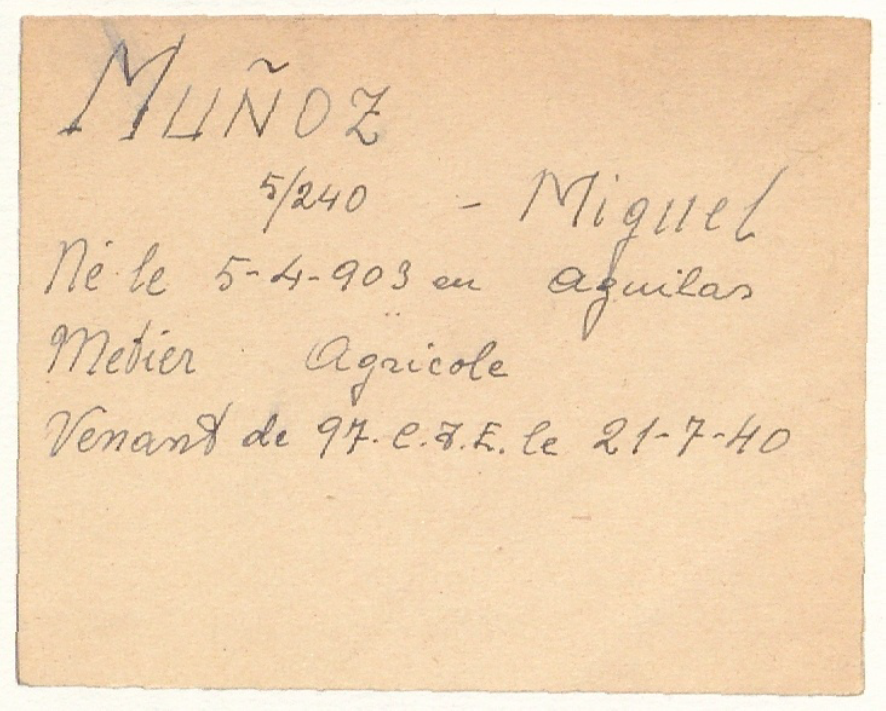 MUÑOZ
5/240 - Miguel
Né le 5-4-903 en Aguilas
Metier Agricole
Venant de 97. C.T.E. le 21-7-40